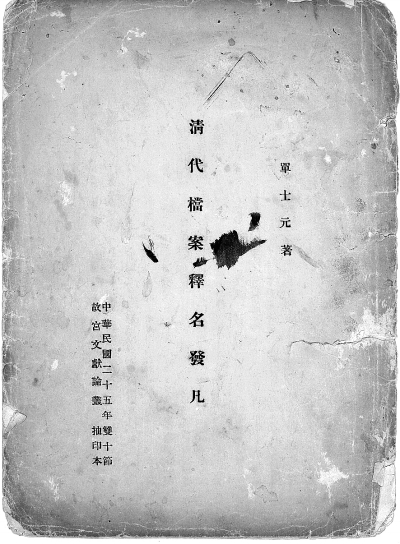 單士元著
清代檔案釋名發凡
中華民國二十五年雙十節
故宮文獻論叢 抽印本